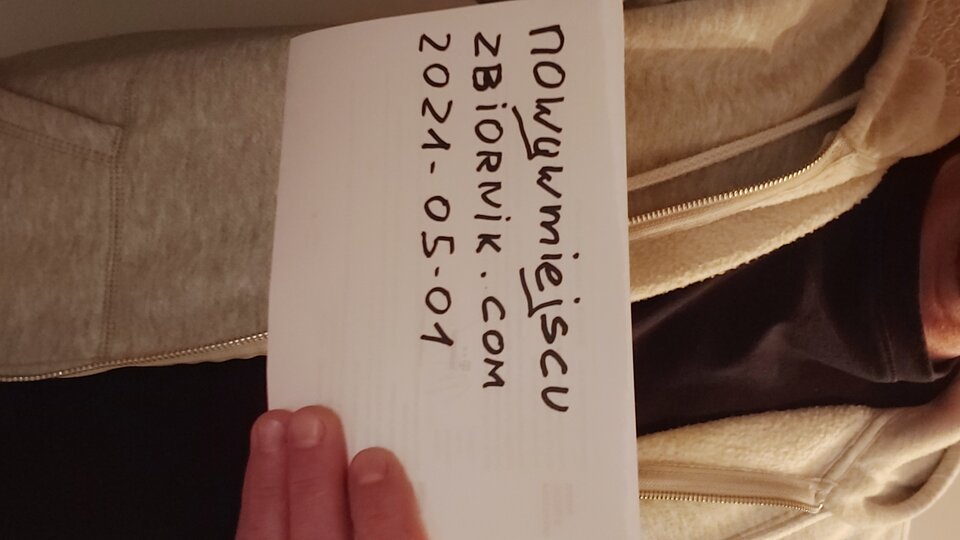 nowywmiejscu
ZBiORNiK.COM
2021-05-01